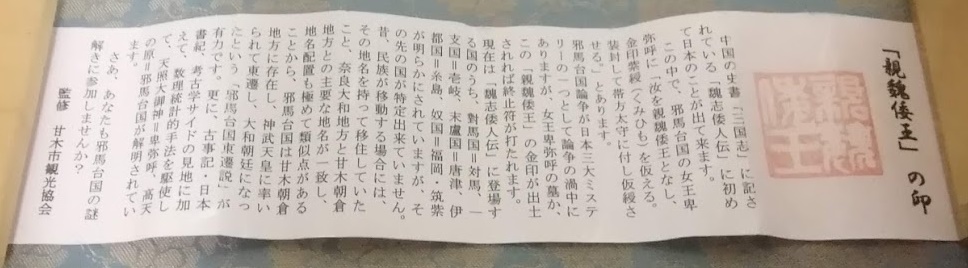 「親魏倭王」の印
親魏
倭王
中国の史書「三国志」に記さ
れている「魏志倭人伝」に初め
て日本のことが出て来ます。
この中で、邪馬台国の女王卑
弥呼に「汝を親魏倭王となし、
金印紫綬(くみひも)を仮える。
装封して帯方太守に付し仮綬さ
せる。」とあります。
邪馬台国論争が日本三大ミステ
リーの一つとして論争の渦中に
ありますが、女王卑弥呼の墓か、
この「親魏倭王」の金印が出土
されれば終止符が打たれます。
現在は「魏志倭人伝」に登場す
る国のうち、對馬国=対馬、一
支国=壱岐、末盧国=唐津、伊
都国=糸島、奴国=福岡・筑紫
が明らかにされていますが、そ
の先の国が特定出来ていません。
昔、民族が移動する場合には、
その地名を持って移住していた
こと、奈良大和地方と甘木朝倉
地方との主要な地名が一致し、
地名配置も極めて類似点がある
ことから、邪馬台国は甘木朝倉
地方に存在し、神武天皇に率い
られて東遷し、大和朝廷になっ
たという「邪馬台国東遷説」が
有力です。更に、古事記・日本
書紀、考古学サイドの見地に加
えて、数理統計的手法を駆使し
て、天照大御神=卑弥呼、高天
の原=邪馬台国が解明されてい
ます。
さあ、あなたも邪馬台国の謎
解きに参加しませんか?
監修 甘木市観光協会